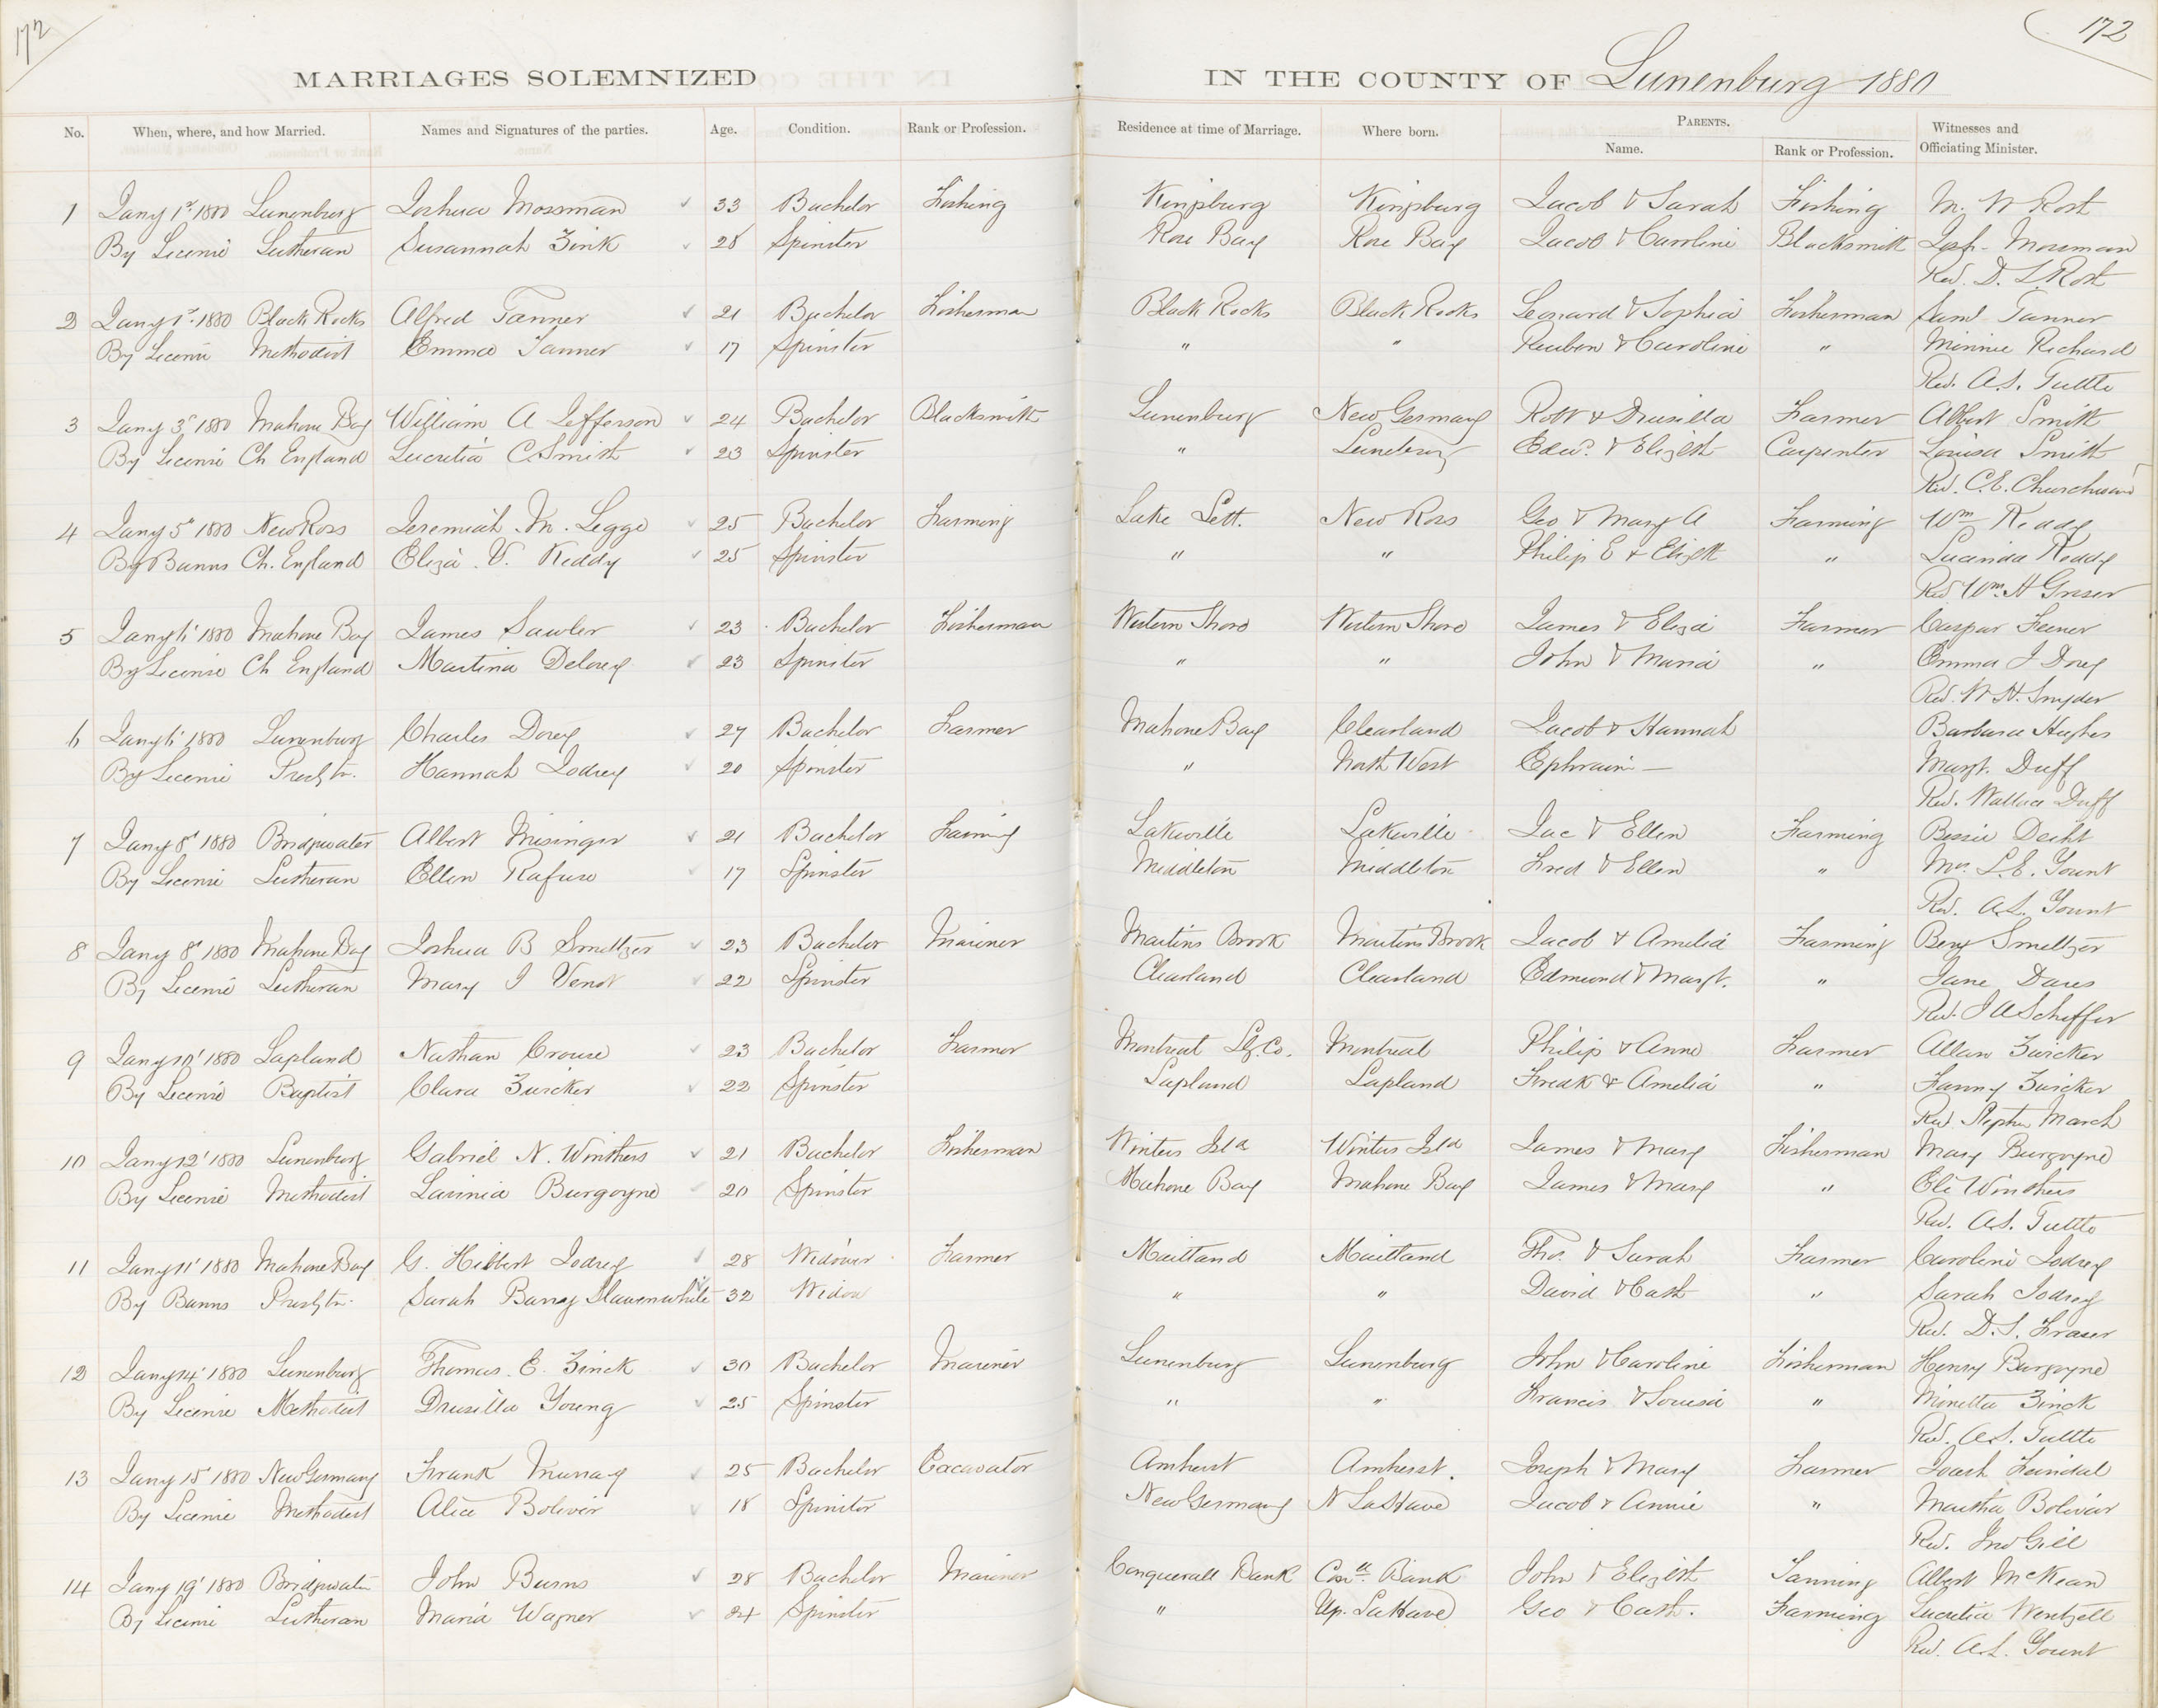 172 172
MARRIAGES SOLEMNIZED IN THE COUNTY OF Lunenburg 1880
No. When, where, and how Married. Names and Signatures of the parties. Age. Condition. Rank or Profession. Residence at time of Marriage. Where born. PARENTS. Witnesses and Officiating Minister.
Name. Rank or Profession.
1 Jany 1st 1880 Lunenburg Joshua Mossman 33 Bachelor Fishing Kingsburg Kingsburg Jacob & Sarah Fishing M. W Rost
By License Lutheran Susannah Zink 28 Spinster Rose Bay Rose Bay Jacob & Caroline Blacksmith Josh. Mossman
Rev. D. L. Rost
2 Jany 1st 1880 Black Rocks Alfred Tanner 21 Bachelor Fisherman Black Rocks Black Rocks Leonard & Sophia Fisherman Saml Tanner
By License Methodist Emma Tanner 17 Spinster " " Reuben & Caroline " Minnie Richard
Rev. A.S. Tuttle
3 Jany 3d 1880 Mahone Bay William A Jefferson 24 Bachelor Blacksmith Lunenburg New Germany Robt & Drusilla Farmer Albert Smith
By License Ch England Lucretia C. Smith 23 Spinster " Lunebury Edwd. & Elizbth Carpenter Louisa Smith
Rev. C.E. Churchward
4 Jany 5th 1880 New Ross Jeremiah M. Legge 25 Bachelor Farming Lake Sett. New Ross Geo & Mary A Farming Wm Keddy
By Banns Ch. England Eliza V. Keddy 25 Spinster " " Philip E & Elizth " Lucinda Keddy
Rev Wm. H Groser
5 Jany 6' 1880 Mahone Bay James Sawler 23 Bachelor Fisherman Western Shore Western Shore James & Eliza Farmer Caspar Feener
By License Ch England Martina Delorey 23 Spinster " " John & Maria " Emma J Dorey
Rev. W. H. Snyder
6 Jany 6' 1880 Lunenburg Charles Dorey 27 Bachelor Farmer Mahone Bay Clearland Jacob & Hannah Barbara Hughes
By License Presbtn. Hannah Lodrey 20 Spinster " North West Ephraim — Margt. Duff
Rev. Wallace Duff
7 Jany 8' 1880 Bridgwater Albert Misinger 21 Bachelor Farming Lakeville Lakeville Jac & Ellen Farming Bessie Decht
By License Lutheran Ellen Rafuse 17 Spinster Middleton Middleton Fred & Ellen " Mrs. L.E. Yount
Rev. A.L. Yount
8 Jany 8' 1880 Mahone Bay Joshua B Smeltzer 23 Bachelor Mariner Martins Brook Martins Brook Jacob & Amelia Farming Benj Smeltzer
By License Lutheran Mary J Venot 22 Spinster Clearland Clearland Edmund & Margt. " Jane Dares
Rev. J A Scheffer
9 Jany 10' 1880 Lapland Nathan Crouse 23 Bachelor Farmer Montreal Lg. Co. Montreal Philip & Anne Farmer Allan Zwicker
By License Baptist Clara Zwicker 22 Spinster Lapland Lapland Fredk & Amelia " Fanny Zwicker
Rev. Stephn March
10 Jany 12' 1880 Lunenburg Gabriel N. Winthers 21 Bachelor Fisherman Winters Isld Winters Isld James & Mary Fisherman Mary Burgoyne
By License Methodist Lavinia Burgoyne 20 Spinster Mahone Bay Mahone Bay James & Mary " Eli Winthers
Rev. A.S. Tuttle
11 Jany 11' 1880 Mahone Bay G. Hibbert Lodrey 28 Widower Farmer Maitland Maitland Thos. & Sarah Farmer Caroline Lodrey
By Banns Presbytn. Sarah Barry Slauenwhite 32 Widow " " David & Cath " Sarah Lodrey
Rev. D.S. Fraser
12 Jany 14' 1880 Lunenburg Thomas. E. Zinck 30 Bachelor Mariner Lunenburg Lunenburg John & Caroline Fisherman Henry Burgoyne
By License Methodist Drusilla Young 25 Spinster " " Francis & Louisa " Minetta Zinck
Rev. A.S. Tuttle
13 Jany 15' 1880 New Germany Frank Murray 25 Bachelor Excavator Amherst Amherst. Joseph & Mary Farmer Joash Feindal
By License Methodist Alice Bolivar 18 Spinster New Germany N LaHave Jacob & Annie " Martha Bolivar
Rev. Jno Gill
14 Jany 19' 1880 Bridgwater John Burns 28 Bachelor Mariner Conquerall Bank Conll. Bank John & Elizbth Farming Albert McKean
By License Lutheran Maria Wagner 24 Spinster " Up. LaHave Geo & Cath. Farming Lucretia Wentzell
Rev. A.L. Yount